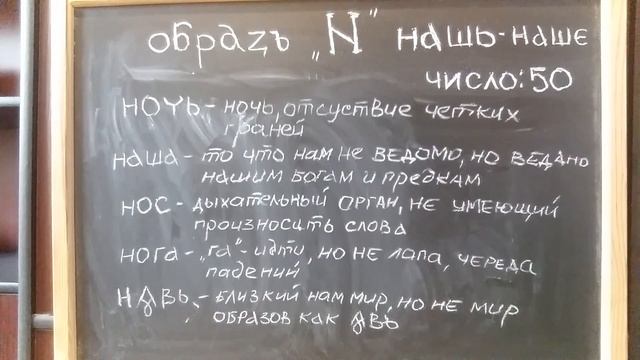 образъ „N" нашь-наше
число:50
ночь - ночь, отсуствие четких
граней
наша - то что нам не ведомо, но ведано
нашим богам и предкам
нос - дыхательный орган, не умеющий
произносить слова
нога - „га"-идти, но не лапа, череда
падений
навь - близкий нам мир, но не мир
образов как явь